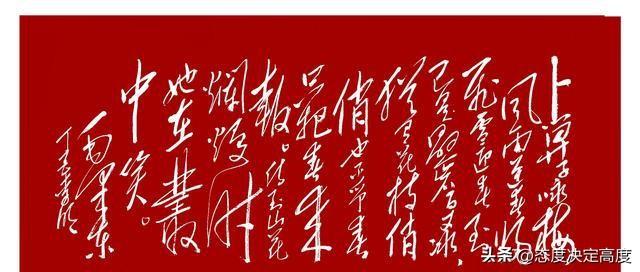 卜算子咏梅
风雨送春归
飞雪迎春到
已是悬崖百丈冰
犹有花枝俏
俏也不争春
只把春来
报。待到山花
爛熳时
她在叢
中笑。
毛泽东
头条 @态度决定高度